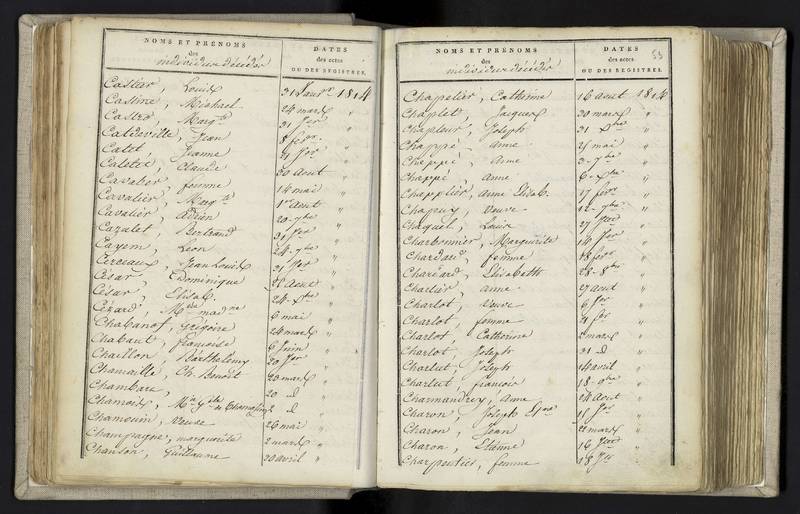 NOMS ET PRÉNOMS
des
individus décédés
DATES
des actes
OU DES REGISTRES.
Castier, Louis 31 Janvr 1814
Castine, Michael 24 mars "
Castro, Margte 31 Jer "
Catideville, Jean 8 fevr "
Catet, Jeanne 21 Jer "
Caletie, Claude 30 Aout "
Cavalier, femme 14 mai "
Cavalier, Margte 1er Aout "
Cavalier, Adrien 20 7bre "
Cazalet, Bertrand 31 Jer "
Cayem, Leon 24 7bre "
Cerceaux, Jean Louis 21 Jer "
César, Dominique 21 Aout "
César, Elisab. 24 Xbre "
Cézard, Mde 6 mai "
Chabanot, Grégoire 24 mars "
Chabaut, françoise 6 Juin "
Chaillon, Barthelémy 20 Jer "
Chamaille, Ch. Benoit 20 mars "
Chambare, 20 id "
Chamoix, 2 id "
Chamouin, Veuve 26 mai "
Champagne, marguerite 2 mars "
Chanson, Guillaume 20 avril "
53
NOMS ET PRÉNOMS
des
individus décédés
DATES
des actes
OU DES REGISTRES.
Chapelier, Catherine 16 aout 1814
Chaplet, Jacques 30 mars "
Chapleur, Joseph 31 Xbre "
Chappé, anne 25 mai "
Chappé, Anne 3 7bre "
Chappé, anne 6 Xbre "
Chapplier, Anne Elisab. 17 fevr "
Chapuy, Veuve 12 7bre "
Charquet, Louis 27 "
Charbonnier, Marguerite 14 Jer "
Chardard, femme 18 fevr "
Chardard, Elisabeth 28 8bre "
Charlier, anne 27 aout "
Charlot, veuve 6 Jer "
Charlot, femme 21 Jer "
Charlot, Catherine 2 mars "
Charlot, Joseph 21 id "
Charlut, Joseph 14 avril "
Charlut, françois 18 9bre "
Charmandrey, Anne 24 Aout "
Charon, Joseph 11 Jer "
Charon, Jean 22 mars "
Charon, Etiénne 16 "
Charpentier, femme 18 Jer "